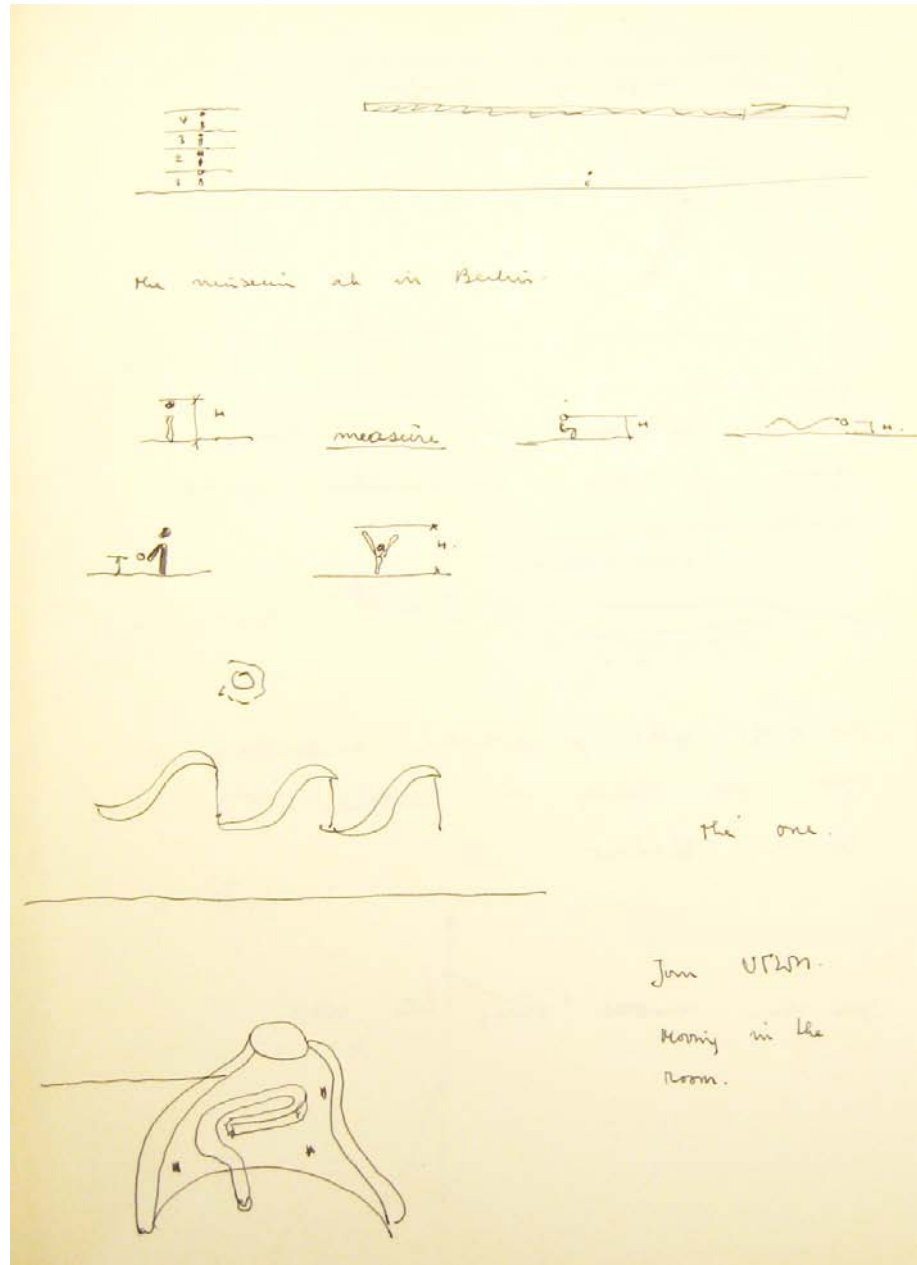 4
3
2
1
the museum in Berlin.
H
measure
H
H.
H.
the one.
Jorn UTZON.
Moving in the
room.